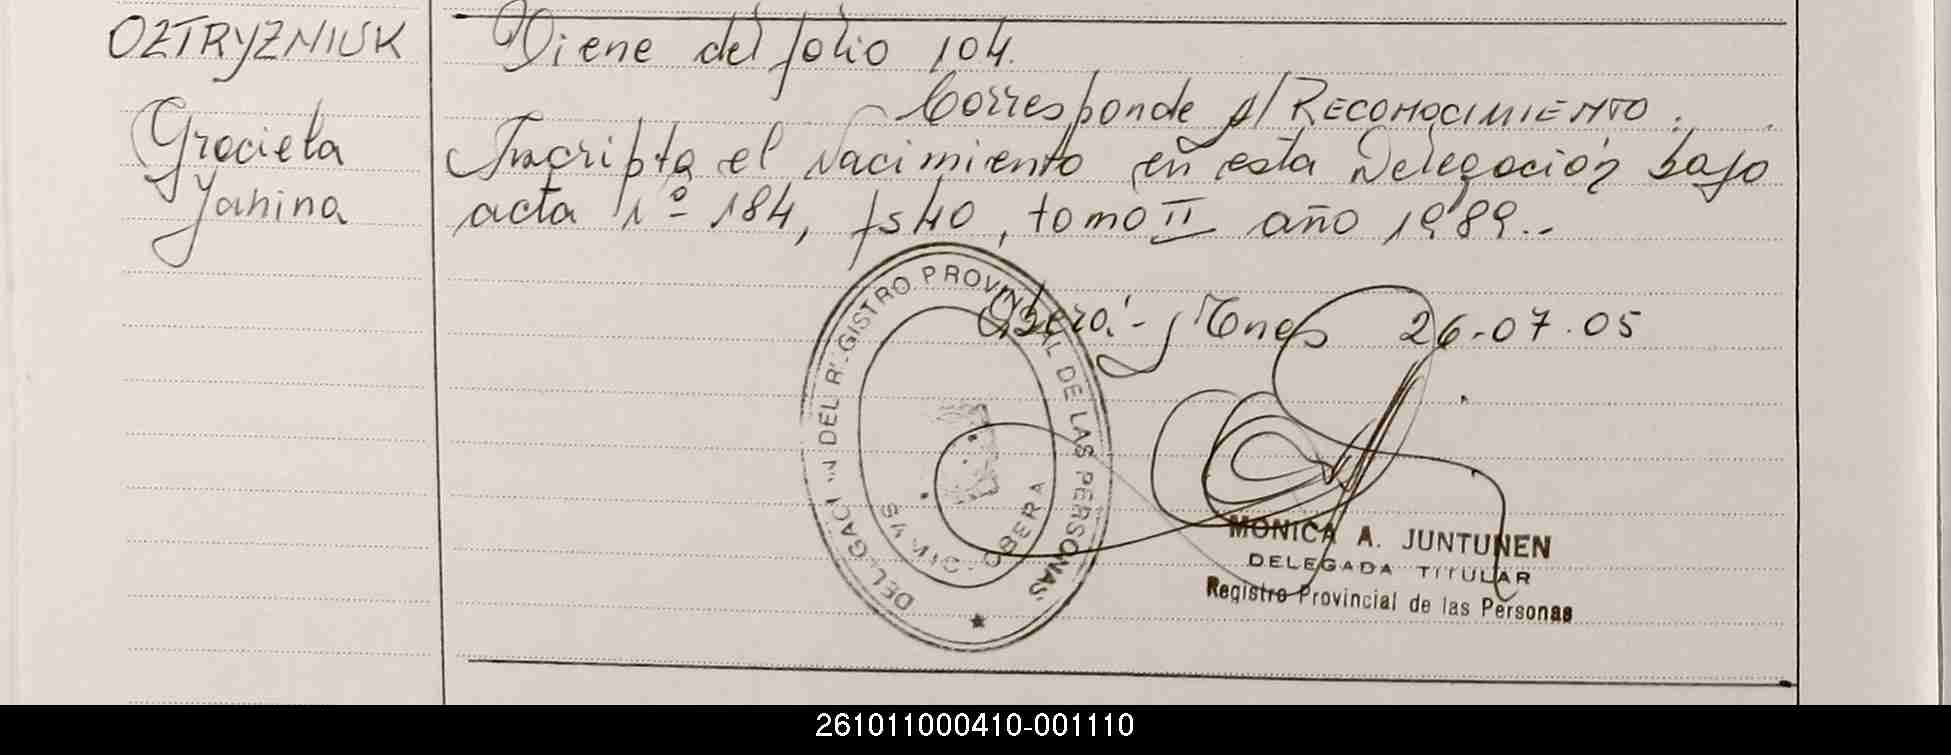 OZTRYZNIUK
Graciela
Yanina
Viene del folio 104.
Corresponde a/ RECONOCIMIENTO.
Inscripta el Nacimiento en esta Delegación bajo
acta nº 184, fs 40, tomo II año 1989.-
Oberá - Mnes 26-07-05
REGISTRO PROVINCIAL DE LAS PERSONAS
OBERA
MONICA A. JUNTUNEN
DELEGADA TITULAR
Registro Provincial de las Personas
261011000410-001110